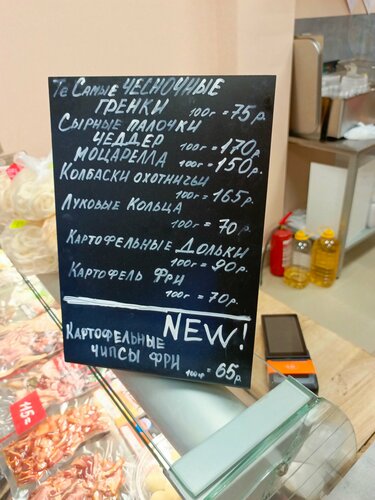 Те Самые ЧЕСНОЧНЫЕ
ГРЕНКИ 100г = 75р.
Сырные палочки
ЧЕДДЕР 100г = 170р.
МОЦАРЕЛЛА 100г = 150р.
Колбаски охотничьи
100г = 165р.
Луковые Кольца
100г = 70р.
Картофельные Дольки
100г = 90р.
Картофель Фри
100г = 70р.
NEW!
Картофельные
чипсы фри 100гр = 65р.
145